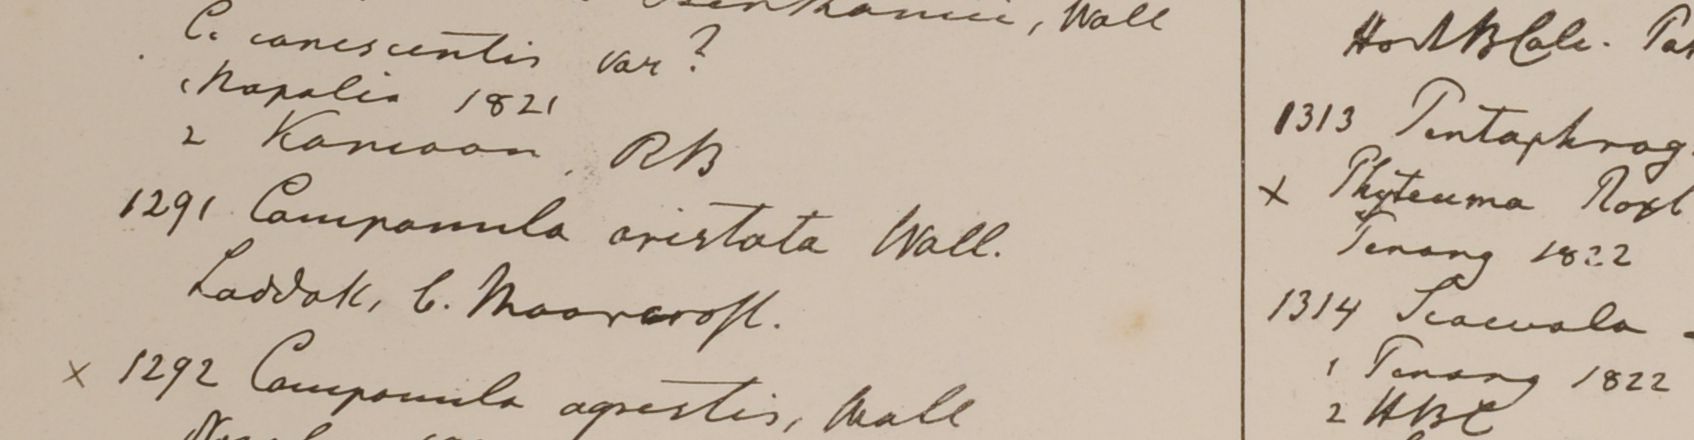 Benthamii, Wall
C. canescentis var?
1 Napalia 1821
2 Kamoon, RB
1291 Campanula aristata Wall.
Laddak, C. Moorcroft.
x 1292 Campanula agrestis, Wall
HortBCalc.
1313 Pentaphrag
x Phyteuma Roxb
Penang 1822
1314 Scaevola
1 Penang 1822
2 HBC